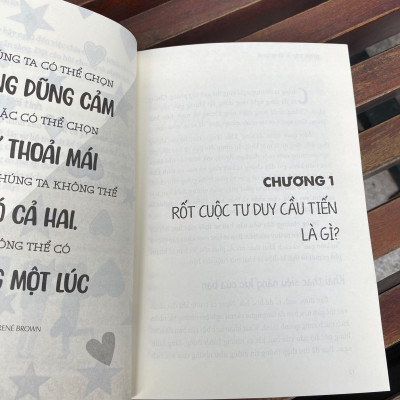 ÚNG TA CÓ THỂ CHỌN
NG DŨNG CẢM
ẶC CÓ THỂ CHỌN
THOẢI MÁI
HÚNG TA KHÔNG THỂ
Ó CẢ HAI.
ÔNG THỂ CÓ
NG MỘT LÚC
RENÉ BROWN
CHƯƠNG 1
RỐT CUỘC TƯ DUY CẦU TIẾN
LÀ GÌ?